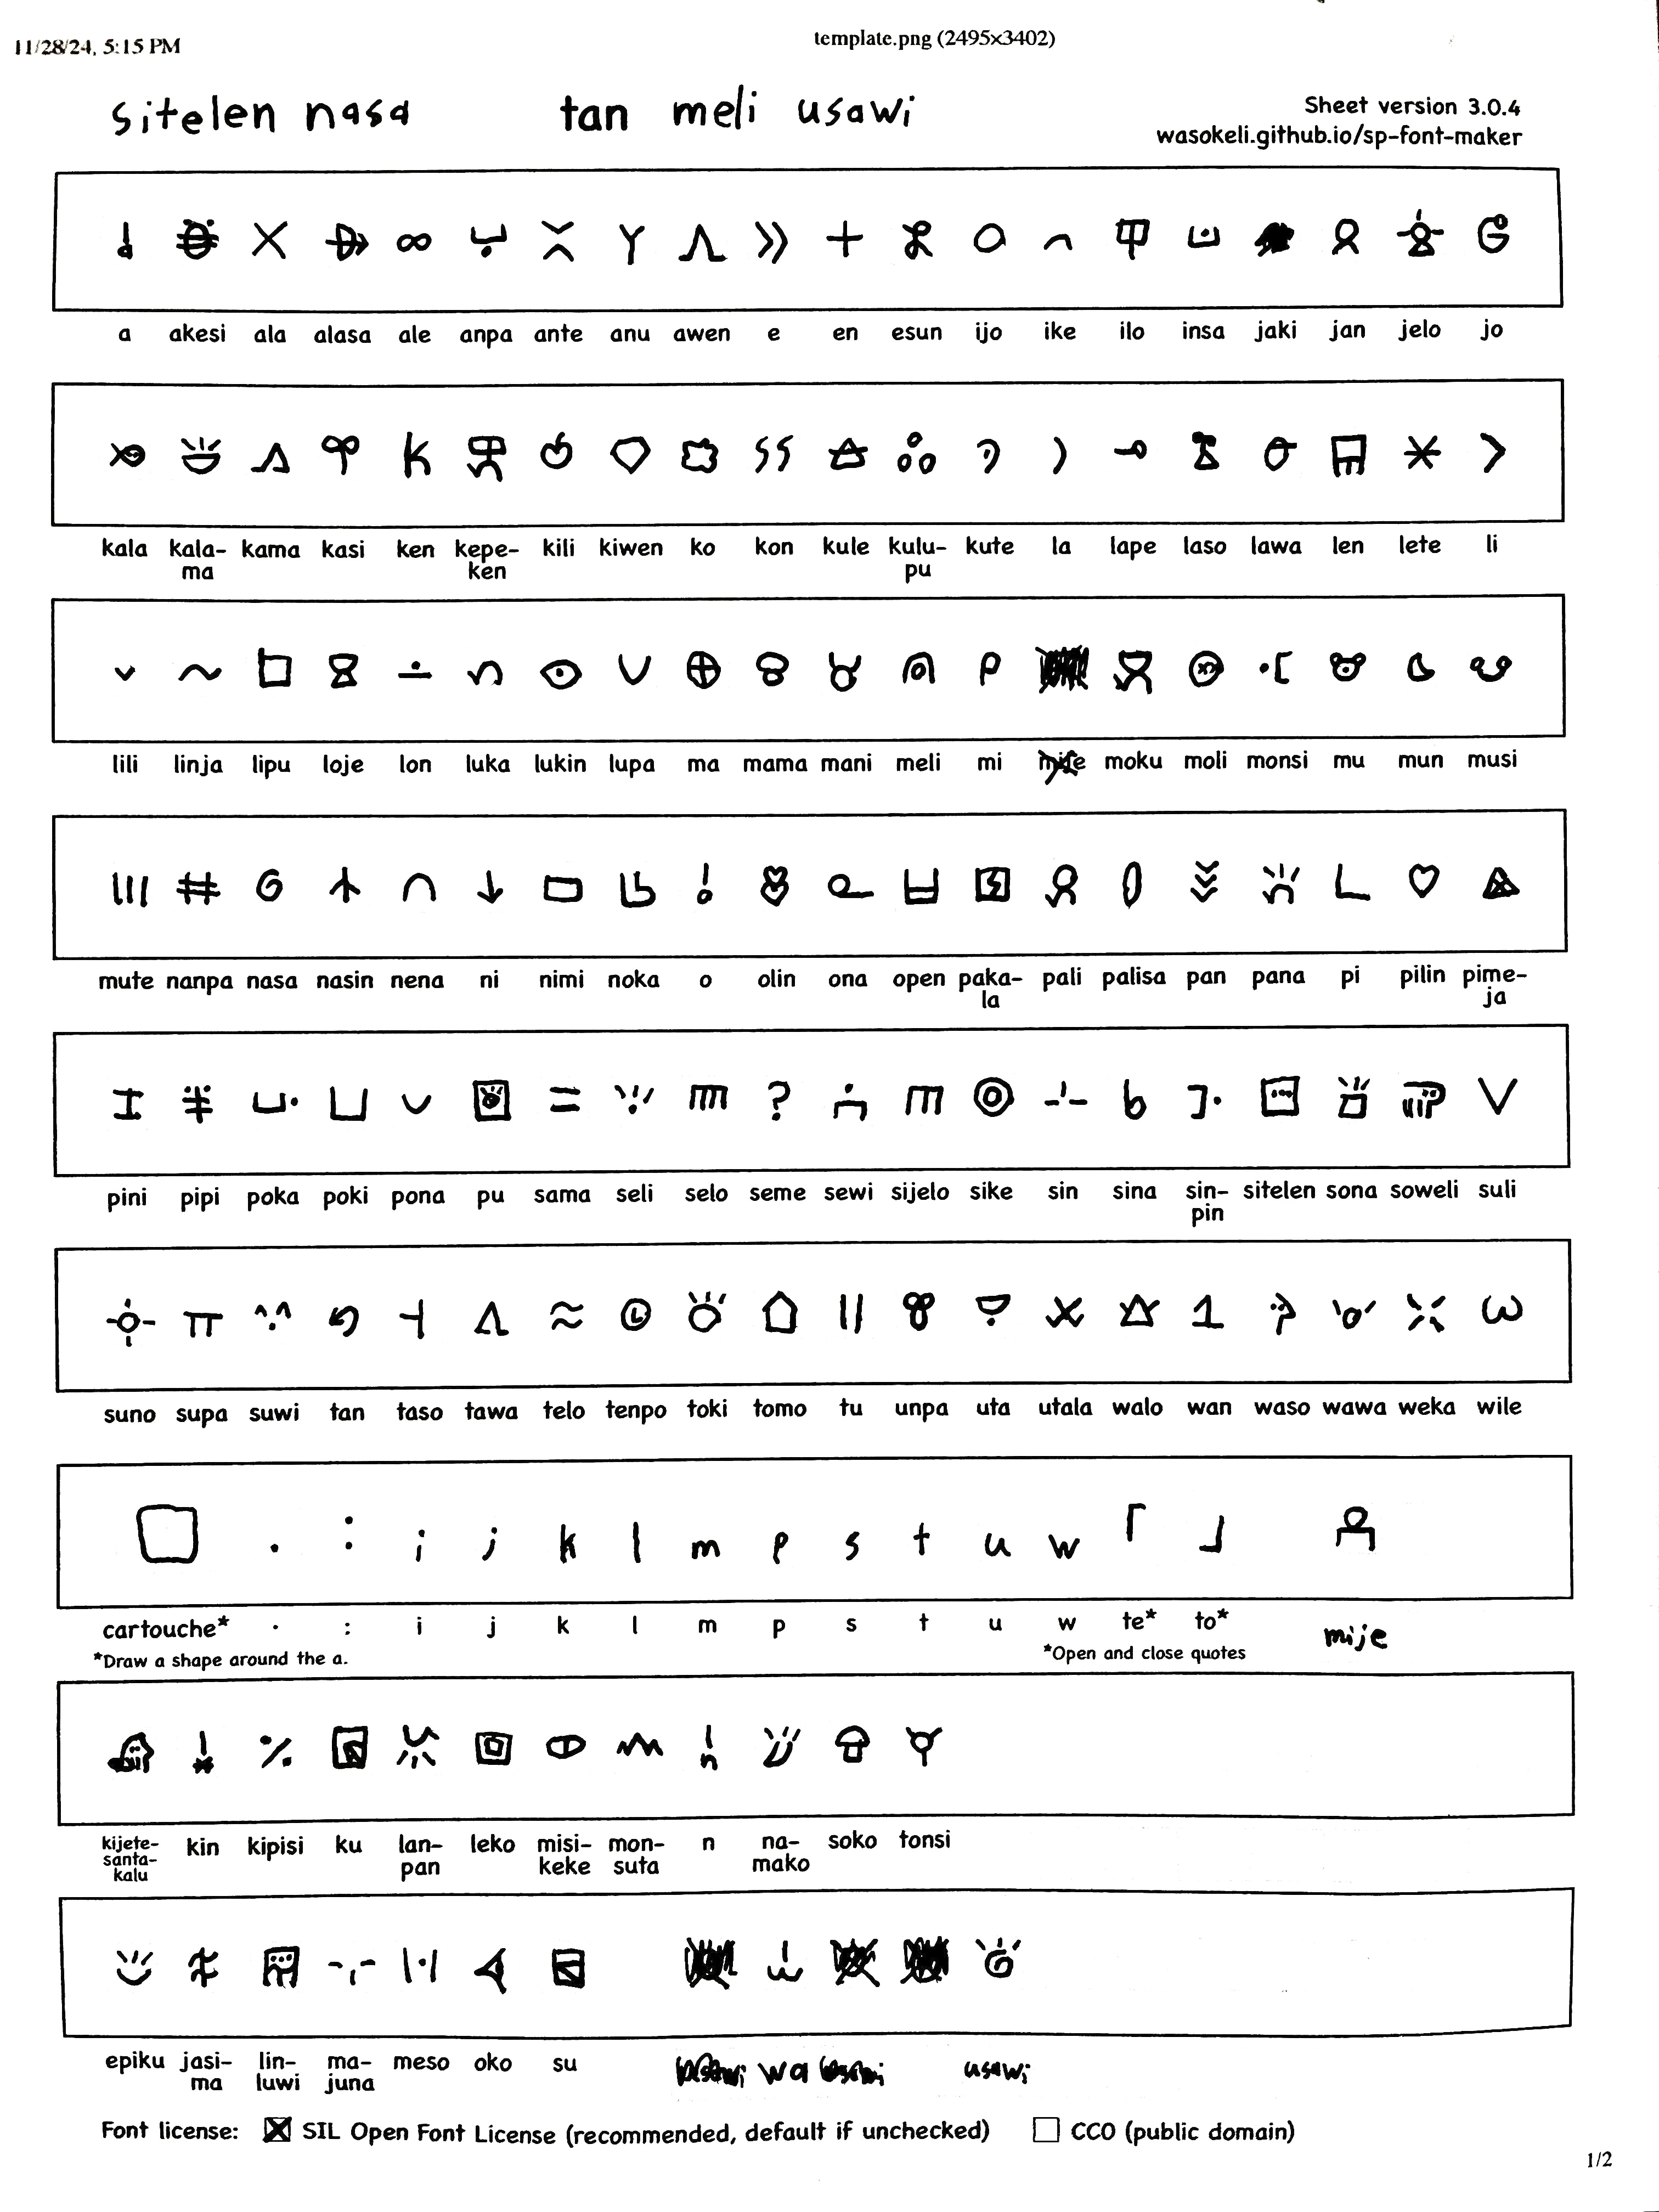 11/28/24, 5:15 PM
template.png (2495x3402)
sitelen nasa tan meli usawi
Sheet version 3.0.4
wasokeli.github.io/sp-font-maker
a akesi ala alasa ale anpa ante anu awen e en esun ijo ike ilo insa jaki jan jelo jo
kala kala- kama kasi ken kepe- kili kiwen ko kon kule kulu- kute la lape laso lawa len lete li
ma ken pu
lili linja lipu loje lon luka lukin lupa ma mama mani meli mi mije moku moli monsi mu mun musi
mute nanpa nasa nasin nena ni nimi noka o olin ona open paka- pali palisa pan pana pi pilin pime-
la ja
pini pipi poka poki pona pu sama seli selo seme sewi sijelo sike sin sina sin- sitelen sona soweli suli
pin
suno supa suwi tan taso tawa telo tenpo toki tomo tu unpa uta utala walo wan waso wawa weka wile
. : i j k l m p s t u w 「 」
cartouche* · : i j k l m p s t u w te* to* mije
*Draw a shape around the a. *Open and close quotes
kijete- kin kipisi ku lan- leko misi- mon- n na- soko tonsi
santa- pan keke suta mako
kalu
epiku jasi- lin- ma- meso oko su wa usawi
ma luwi juna
Font license: SIL Open Font License (recommended, default if unchecked) CC0 (public domain)
1/2